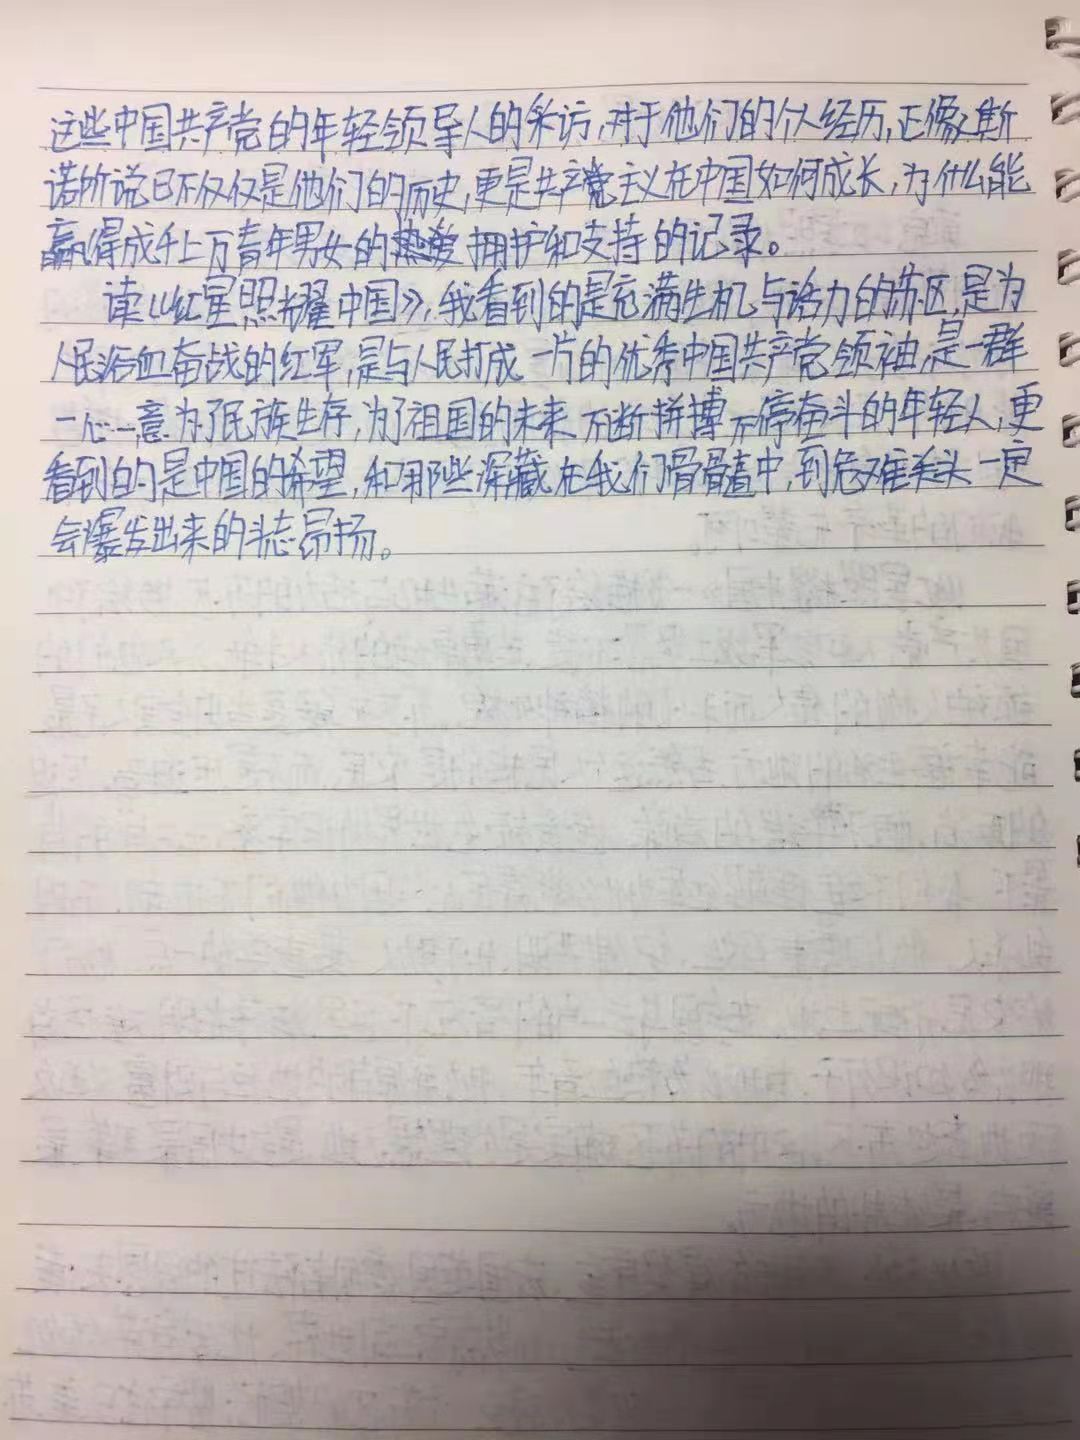 这些中国共产党的年轻领导人的采访,对于他们的个人经历,正像斯
诺所说已不仅仅是他们的历史,更是共产党主义在中国如何成长,为什么能
赢得成千上万青年男女的热爱拥护和支持的记录。
读《红星照耀中国》,我看到的是充满生机与活力的苏区,是为
人民浴血奋战的红军,是与人民打成一片的优秀中国共产党领袖,是一群
一心一意为了民族生存,为了祖国的未来不断拼搏不停奋斗的年轻人,更
看到的是中国的希望,和那些深藏在我们骨髓中,到危难关头一定
会爆发出来的斗志昂扬。